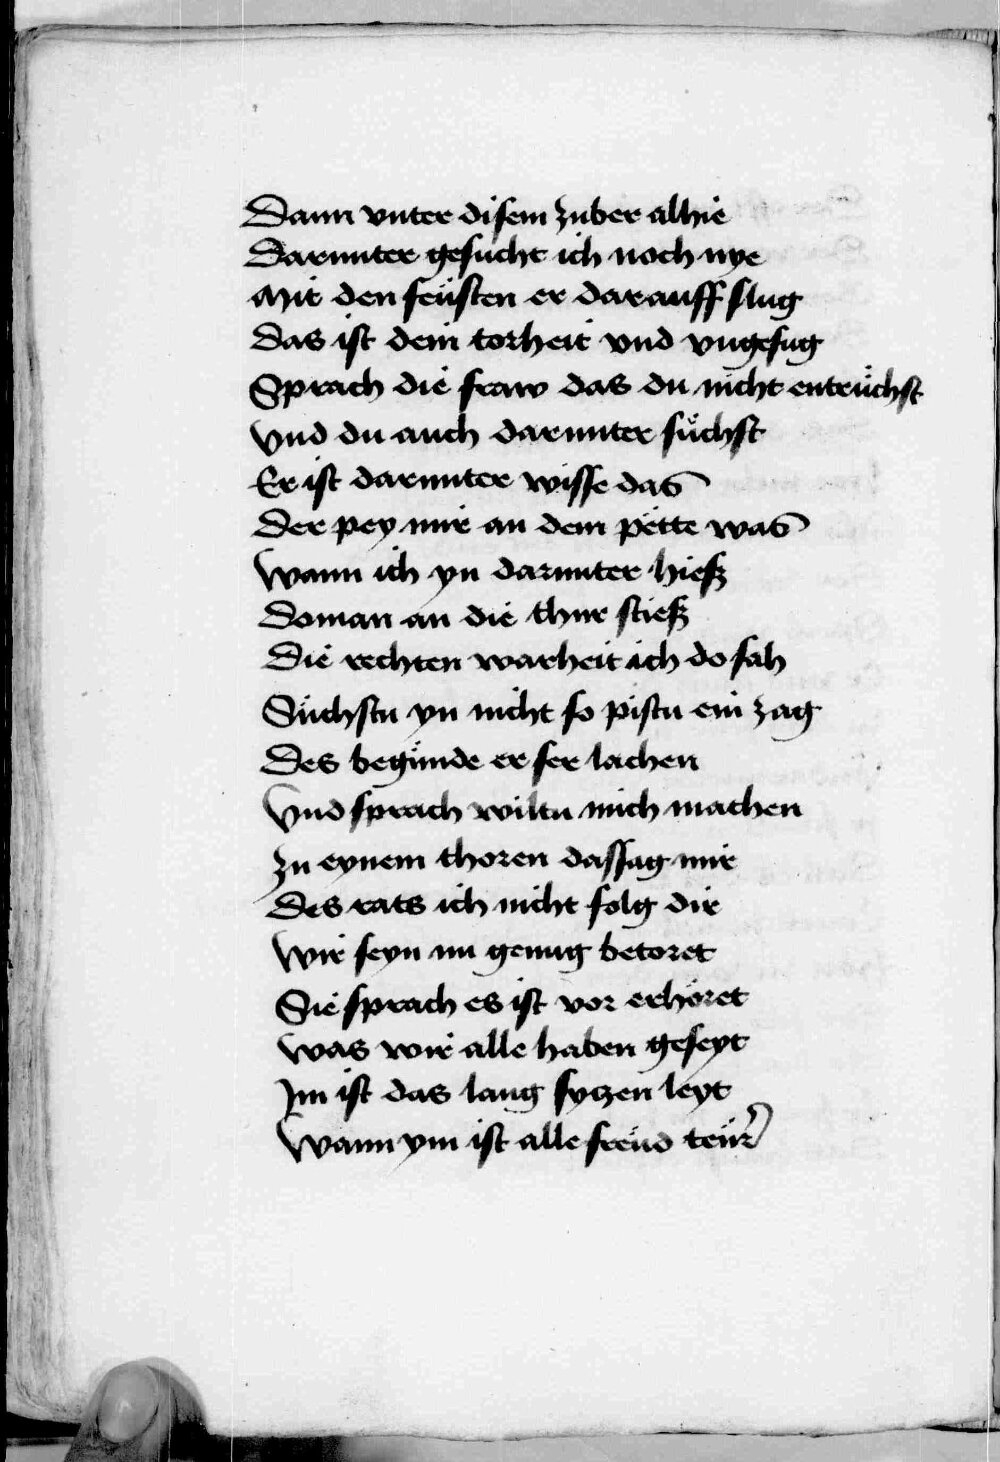 Dann vnter disem zuber alhie
Darunter gesucht ich noch nye
Mit den feüsten er darauff slug
Das ist dein torheit vnd vngefug
Sprach die fraw das du nicht entrüchst
Vnd du auch darunter süchst
Er ist darunter wisse das
Der pey mir an dem pette was
Wann ich yn darunter hiesz
Doman an die thur stiesz
Die rechten warheit ich do sah
Süchstu yn nicht so pistu ein zag
Des begünde er ser lachen
Vnd sprach wiltu mich machen
Zu eynem thoren das sag mir
Des rats ich nicht folg dir
Wir seyn nu genug betoret
Sie sprach es ist vor erhöret
Was wir alle haben geseyt
Im ist das lang sytzen leyt
Wann ym ist alle freüd teür